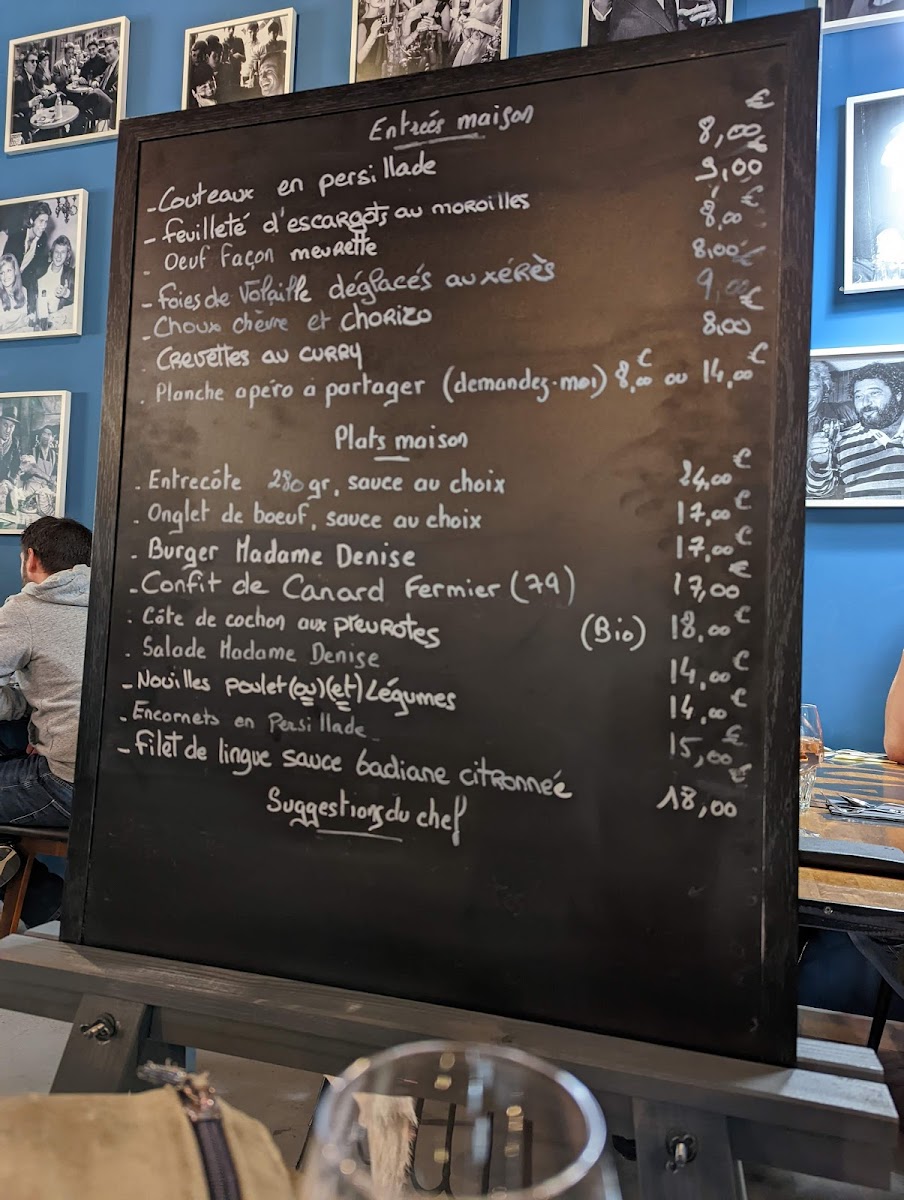 Entrées maison €
- Couteaux en persillade 8,00
- Feuilleté d'escargots au moroilles 9,00 €
. Oeuf façon meurette 8,00 €
- Foies de Volaille déglacés au xérès 8,00 €
- Choux chèvre et CHORIZO 9,00 €
. CREVETTES AU CURRY 8,00 €
. Planche apéro à partager (demandez-moi) 8,00 € ou 14,00 €
Plats maison
. Entrecôte 280 gr, sauce au choix 24,00 €
. Onglet de boeuf, sauce au choix 17,00 €
. Burger Madame Denise 17,00 €
- Confit de Canard Fermier (79) 17,00 €
. Côte de cochon aux pleurotes (Bio) 18,00 €
. Salade Madame Denise 14,00 €
- Nouilles poulet (ou) (et) Légumes 14,00 €
. Encornets en Persillade 15,00 €
- Filet de lingue sauce badiane citronnée 18,00 €
Suggestions du chef